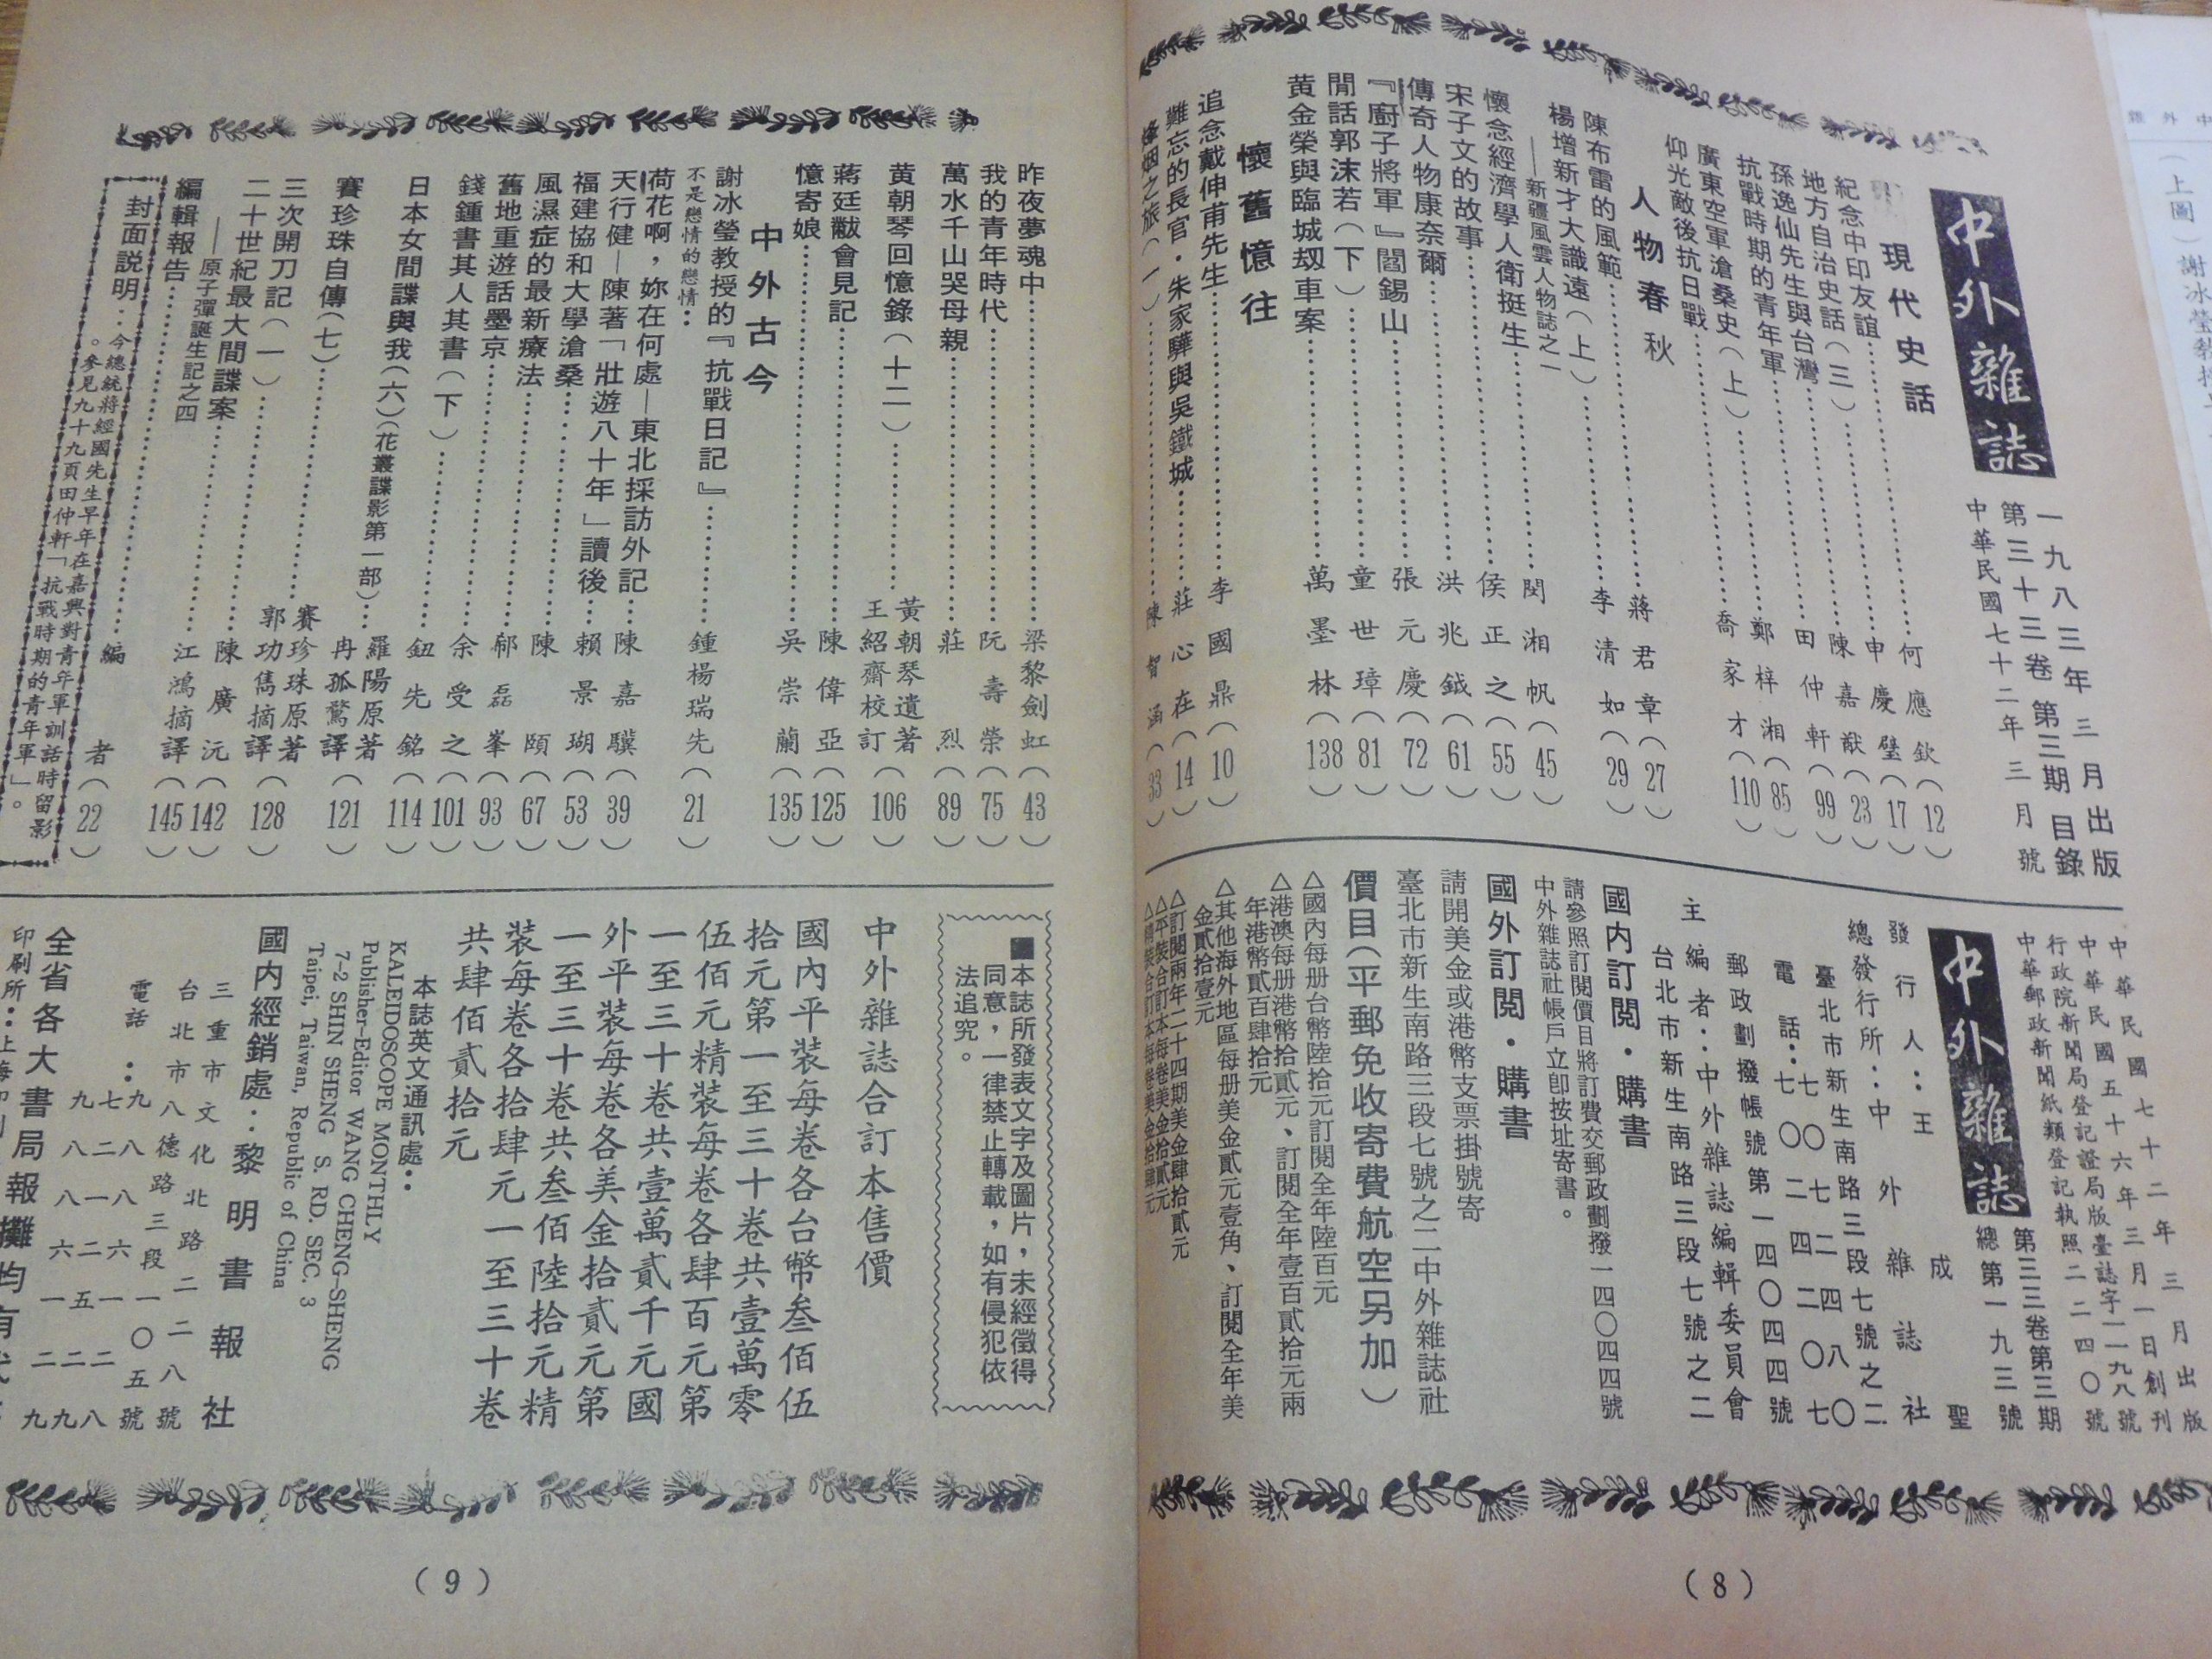 中外雜誌
一九八三年三月出版
第三十三卷第三期目錄
中華民國七十二年三月號
現代史話
紀念中印友誼……何應欽(12)
地方自治史話(三)……申慶璧(17)
孫逸仙先生與台灣……陳嘉猷(23)
抗戰時期的青年軍……田仲軒(99)
廣東空軍滄桑史(上)……鄭梓湘(85)
仰光敵後抗日戰……喬家才(110)
人物春秋
陳布雷的風範……蔣君章(27)
楊增新才大識遠(上)……李清如(29)
——新疆風雲人物誌之一
懷念經濟學人衛挺生……閔湘帆(45)
宋子文的故事……侯正之(55)
傳奇人物康奈爾……洪兆鉞(61)
『廚子將軍』閻錫山……張元慶(72)
閒話郭沫若(下)……童世璋(81)
黃金榮與臨城刼車案……萬墨林(138)
懷舊憶往
追念戴伸甫先生……李國鼎(10)
難忘的長官・朱家驊與吳鐵城……莊心在(14)
烽烟之旅(一)……陳智涵(33)
中華民國七十二年三月出版
中華民國五十六年三月一日創刊
行政院新聞局登記證局版臺誌字二一九八號
中華郵政新聞紙類登記執照二二四〇號
中外雜誌
第三三卷第三期
總第一九三號
發行人:王成聖
總發行所:中外雜誌社
臺北市新生南路三段七號之二
電話:七〇七二四八〇
七〇二四二〇七
郵政劃撥帳號第一四〇四四號
主編者:中外雜誌編輯委員會
台北市新生南路三段七號之二
國內訂閱・購書
請參照訂閱價目將訂費交郵政劃撥一四〇四四號
中外雜誌社帳戶立即按址寄書。
國外訂閱・購書
請開美金或港幣支票掛號寄
臺北市新生南路三段七號之二中外雜誌社
價目(平郵免收寄費航空另加)
△國內每册台幣陸拾元訂閱全年陸百元
△港澳每册港幣拾貳元、訂閱全年壹百貳拾元兩
年港幣貳百肆拾元
△其他海外地區每册美金貳元壹角、訂閱全年美
金貳拾壹元
△訂閱兩年二十四期美金肆拾貳元
△平裝合訂本每卷美金拾貳元
△精裝合訂本每卷美金拾肆元
(8)
昨夜夢魂中……梁黎劍虹(43)
我的青年時代……阮壽榮(75)
萬水千山哭母親……莊烈(89)
黃朝琴回憶錄(十二)……黃朝琴遺著 王紹齋校訂(106)
蔣廷黻會見記……陳偉亞(125)
憶寄娘……吳崇蘭(135)
中外古今
謝冰瑩教授的『抗戰日記』……鍾楊瑞先(21)
不是戀情的戀情:
荷花啊,妳在何處—東北採訪外記…陳嘉驥(39)
天行健—陳著「壯遊八十年」讀後…賴景瑚(53)
福建協和大學滄桑……陳頤(67)
風濕症的最新療法……郁磊峯(93)
舊地重遊話墨京……余受之(101)
錢鍾書其人其書(下)……鈕先銘(114)
日本女間諜與我(六)(花叢諜影第一部)…羅陽原著 冉孤鶩譯(121)
賽珍珠自傳(七)……賽珍珠原著 郭功雋摘譯(128)
三次開刀記(一)……陳廣沅(142)
二十世紀最大間諜案……江鴻摘譯(145)
——原子彈誕生記之四
編輯報告……編者(22)
封面說明:今總統蔣經國先生早年在嘉興對青年軍訓話時留影
。參見九十九頁田仲軒「抗戰時期的青年軍」。
■本誌所發表文字及圖片,未經徵得
同意,一律禁止轉載,如有侵犯依
法追究。
中外雜誌合訂本售價
國內平裝每卷各台幣叁佰伍
拾元第一至三十卷共壹萬零
伍佰元精裝每卷各肆百元第
一至三十卷共壹萬貳千元國
外平裝每卷各美金拾貳元第
一至三十卷共叁佰陸拾元精
裝每卷各拾肆元一至三十卷
共肆佰貳拾元
本誌英文通訊處:
KALEIDOSCOPE MONTHLY
Publisher-Editor WANG CHENG-SHENG
7-2 SHIN SHENG S. RD. SEC. 3
Taipei, Taiwan, Republic of China
國內經銷處:黎明書報社
三重市文化北路二二八號
台北市八德路三段一〇五號
電話:九八八六一二八
七二一二五二九
九八八六一二九
全省各大書局報攤均有
(9)
(上圖)謝冰瑩教授